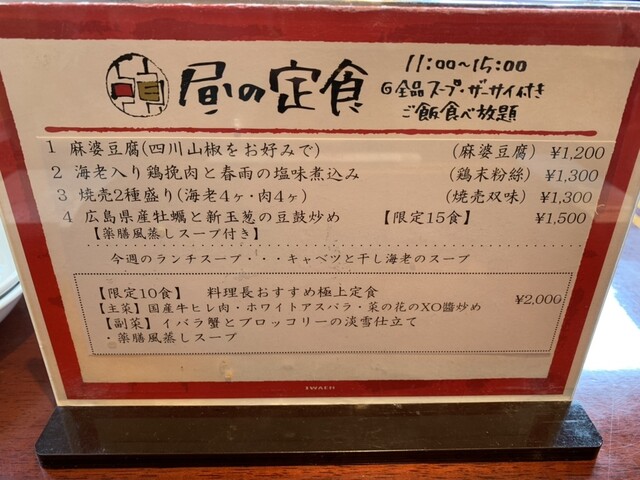 昼の定食
11:00～15:00
◎全品スープ・ザーサイ付き
ご飯食べ放題
1 麻婆豆腐(四川山椒をお好みで) (麻婆豆腐) ¥1,200
2 海老入り鶏挽肉と春雨の塩味煮込み (鶏末粉絲) ¥1,300
3 焼売2種盛り(海老4ヶ・肉4ヶ) (焼売双味) ¥1,300
4 広島県産牡蠣と新玉葱の豆鼓炒め 【限定15食】 ¥1,500
【薬膳風蒸しスープ付き】
今週のランチスープ・・・キャベツと干し海老のスープ
【限定10食】 料理長おすすめ極上定食 ¥2,000
【主菜】国産牛ヒレ肉・ホワイトアスパラ・菜の花のXO醬炒め
【副菜】イバラ蟹とブロッコリーの淡雪仕立て
・薬膳風蒸しスープ